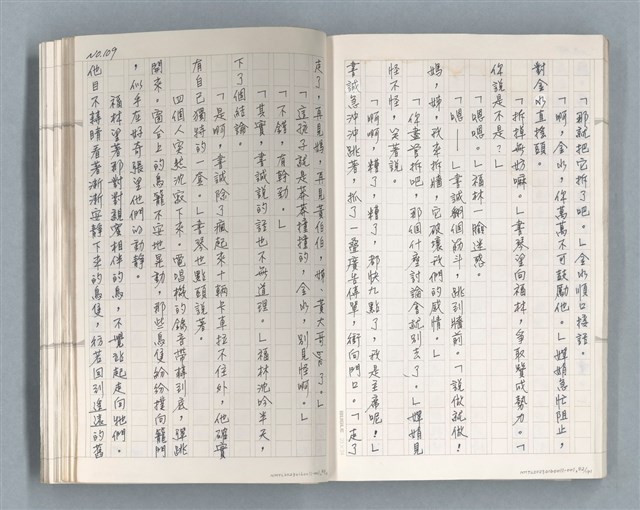 「那就把它拆了吧。」金水順口接話。
「啊，金水，你萬萬不可鼓勵他。」嬋娟急忙阻止，
對金水直搖頭。
「拆掉無妨嘛。」書琴望向福林，爭取贊成勢力。「
你說是不是？」
「嗯嗯。」福林一臉迷惑。
「嗯——」書誠翻個筋斗，跳到牆前。「說做就做！
媽，姊，我來拆牆，它破壞我們的感情。」
「你儘管拆吧，那個什麼討論會就別去了。」嬋娟見
怪不怪，笑著說。
「啊啊，糟了，糟了，都快九點了，我是主席呢！」
書誠急沖沖跳著，抓了一疊廣告傳單，衝向門口。「走了
NO.109
走了，再見媽，再見黃伯伯，姊、黃大哥
「這孩子就是莽莽撞撞的，金水，別見怪啊。」
「不錯，有幹勁。」
「其實，書誠說的話也不無道理。」福林沈吟半天，
下了個結論。
「是啊，書誠除了瘋起來十輛卡車拉不住外，他確實
有自己獨特的一套。」書琴也點頭說著。
四個人突然沈寂下來。電唱機的錄音帶轉到底，彈跳
開來。窗台上的鳥籠不安地晃動，那些鳥隻紛紛撲向籠門
，似乎在好奇張望他們的動靜。
福林望著那對對親蜜相伴的鳥，不覺站起走向牠們。
他目不轉睛看著漸漸安靜下來的鳥隻，彷若回到遙遠的舊